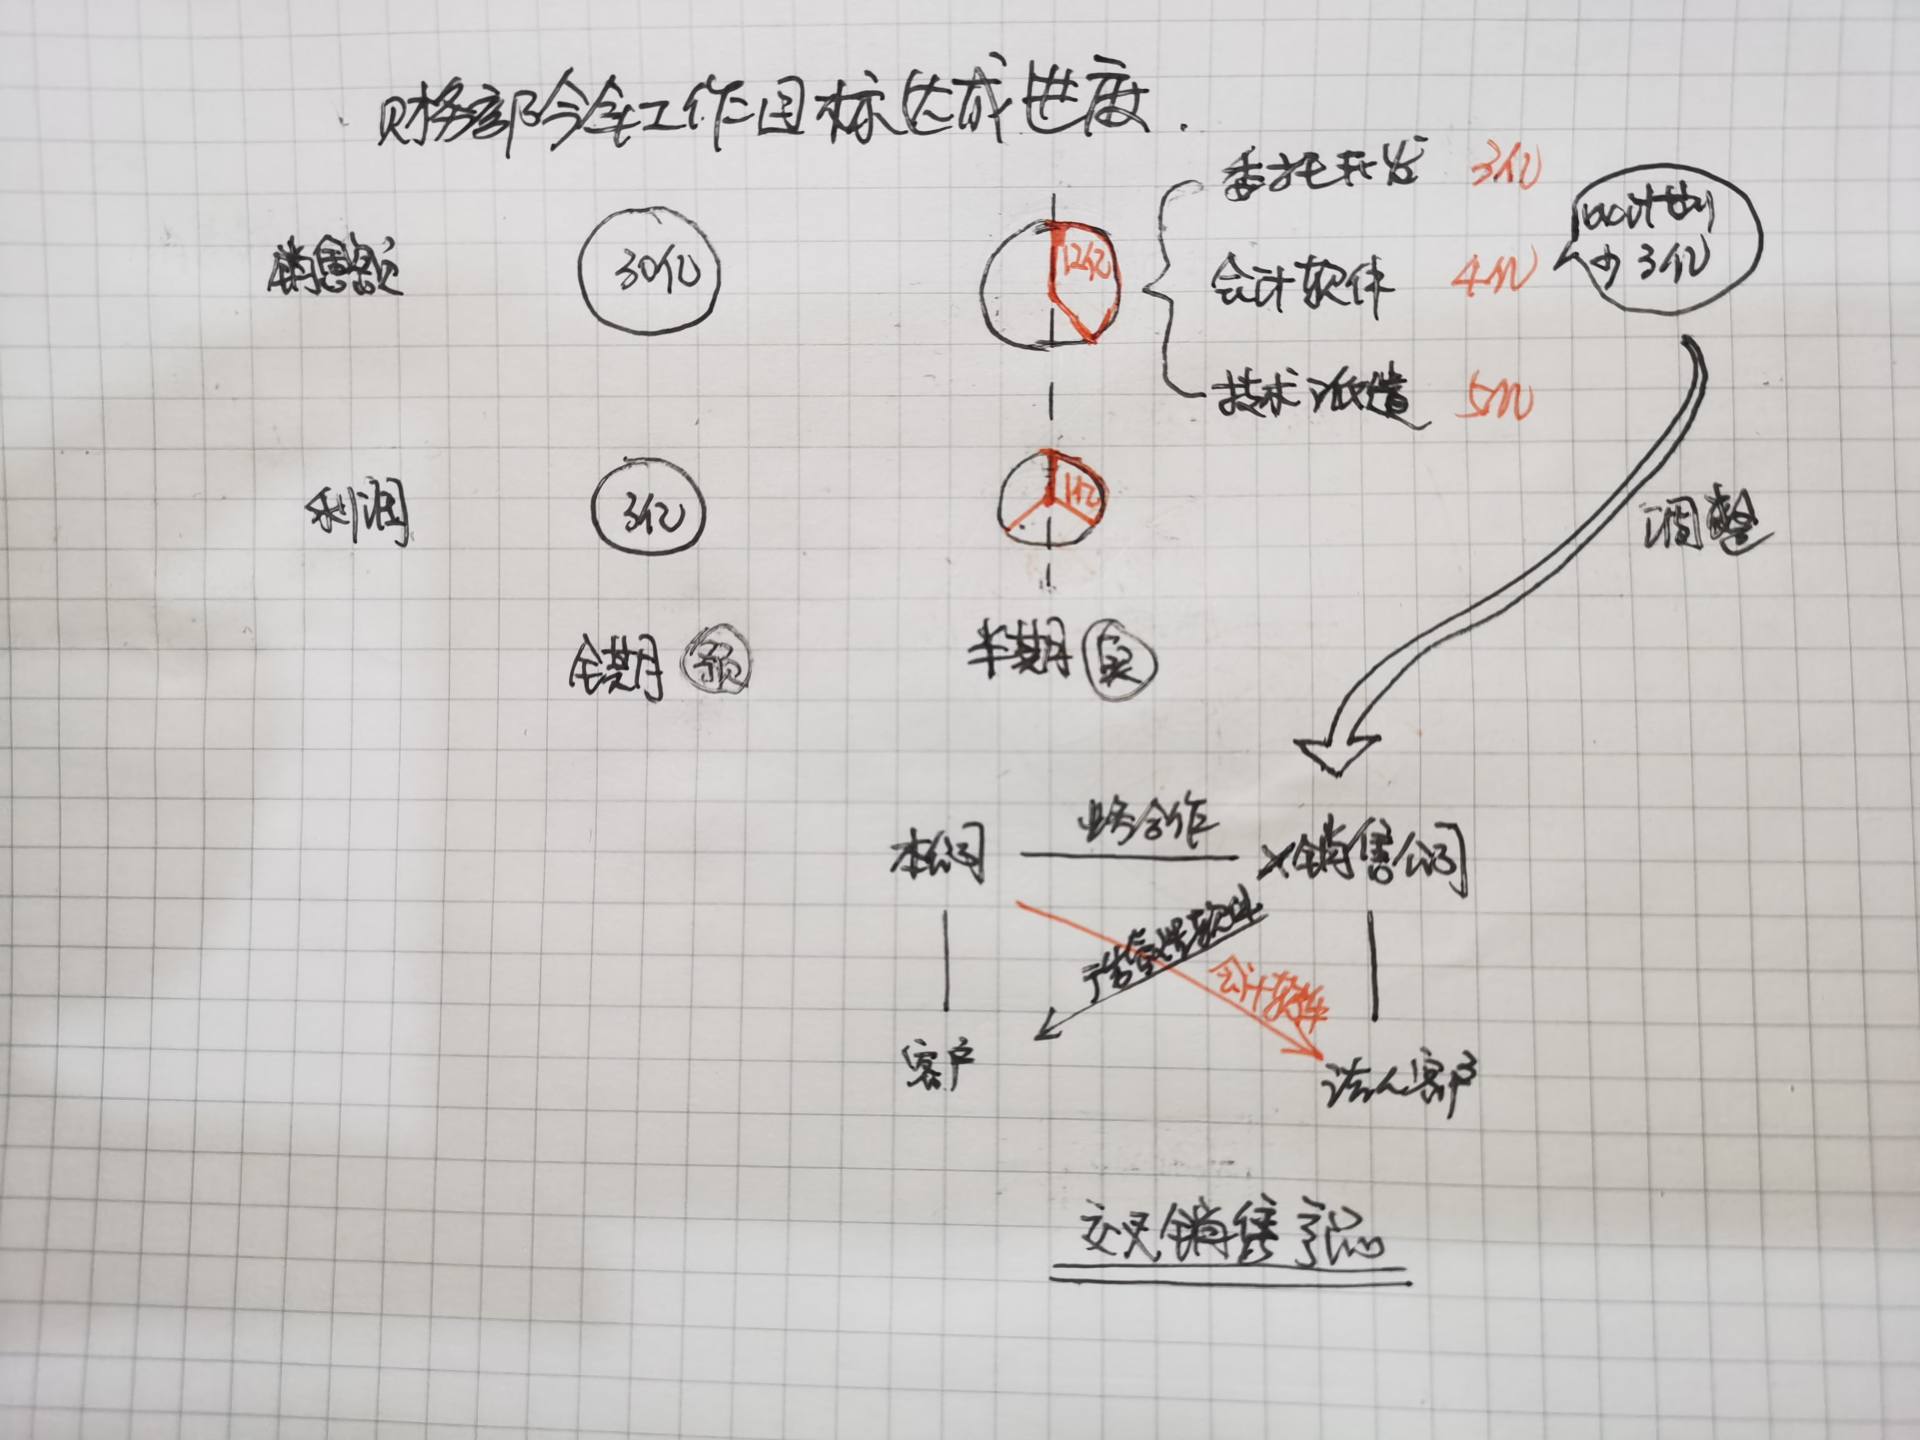 财务部今年工作目标达成进度.
销售额
30亿
12亿
委托开发 3亿
会计软件 4亿
技术派遣 5亿
比计划
少3亿
利润
3亿
1亿
调整
全期 预
半期 实
本公司
业务合作
X销售公司
广告管理软件
会计软件
客户
法人客户
交叉销售